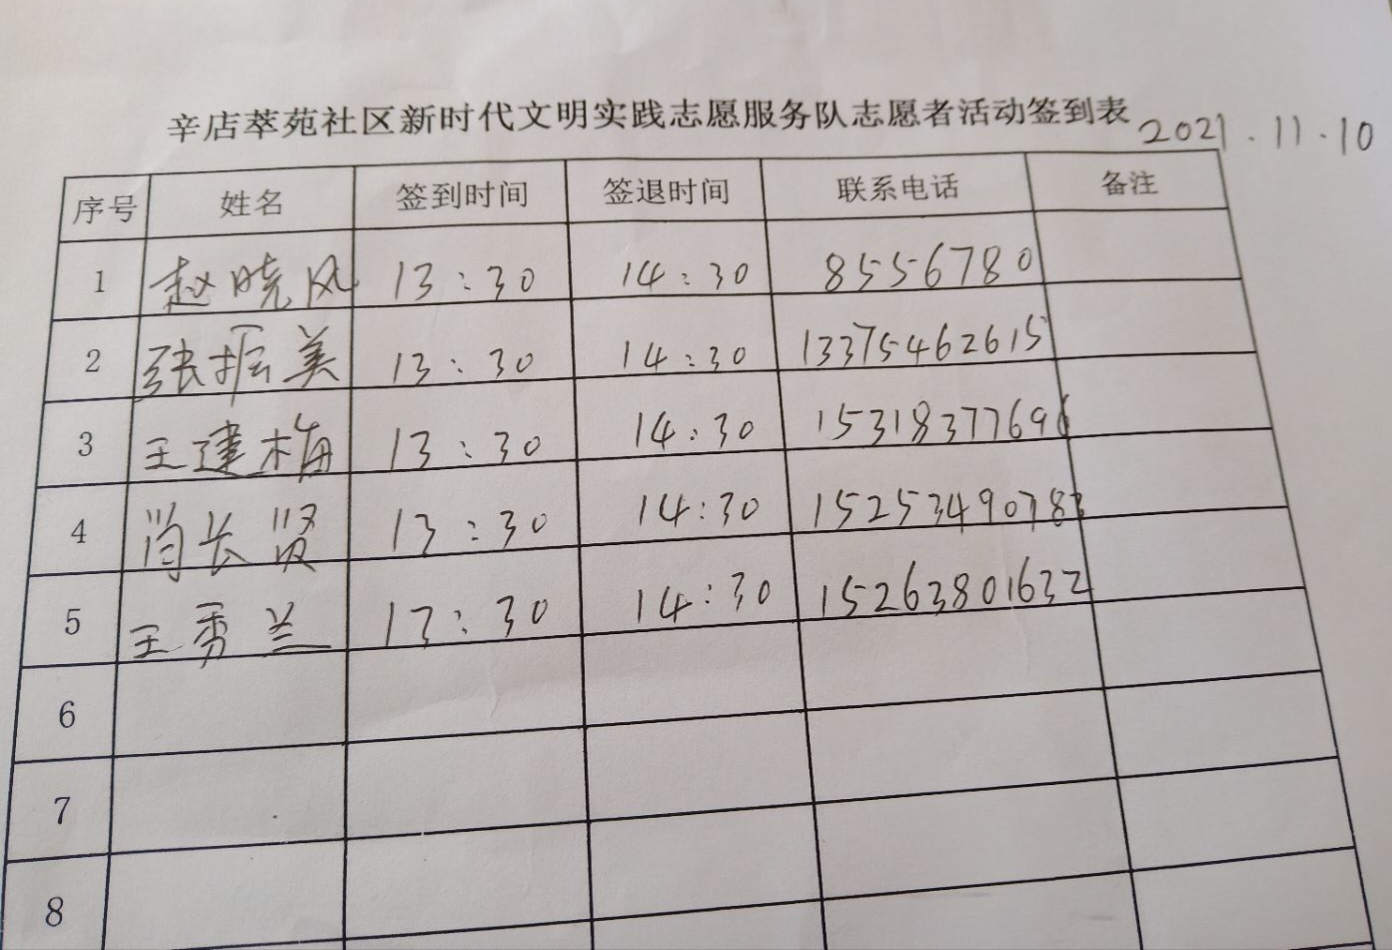 辛店萃苑社区新时代文明实践志愿服务队志愿者活动签到表 2021.11.10
序号 姓名 签到时间 签退时间 联系电话 备注
1 赵晓风 13:30 14:30 8556780
2 张振美 13:30 14:30 13375462615
3 王建梅 13:30 14:30 15318377696
4 肖长贤 13:30 14:30 15253490783
5 王秀兰 13:30 14:30 15263801632
6
7
8